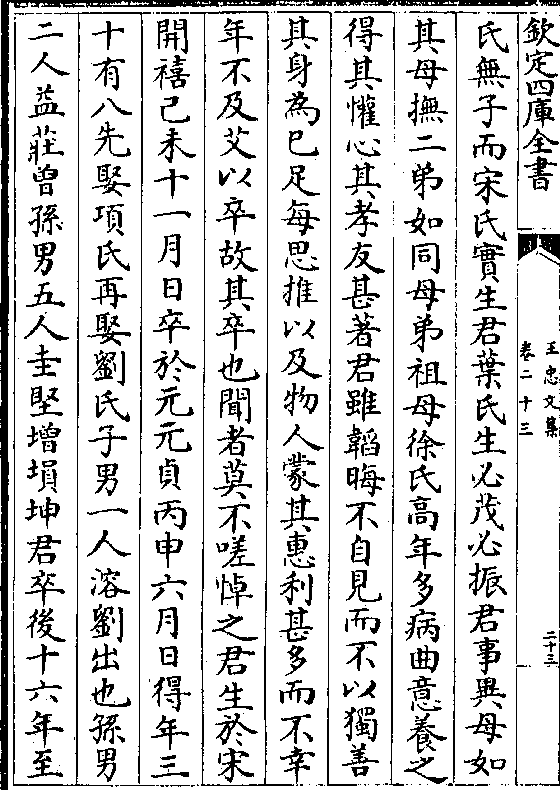 欽定四庫全書
王忠文集
卷二十三
二十三
氏無子而宋氏實生君葉氏生必茂必振君事異母如
其母撫二弟如同母弟祖母徐氏高年多病曲意養之
得其懽心其孝友甚著君雖韜晦不自見而不以獨善
其身為已足每思推以及物人蒙其惠利甚多而不幸
年不及艾以卒故其卒也聞者莫不嗟悼之君生於宋
開禧己未十一月日卒於元元貞丙申六月日得年三
十有八先娶項氏再娶劉氏子男一人溶劉出也孫男
二人益莊曾孫男五人圭堅增塤坤君卒後十六年至